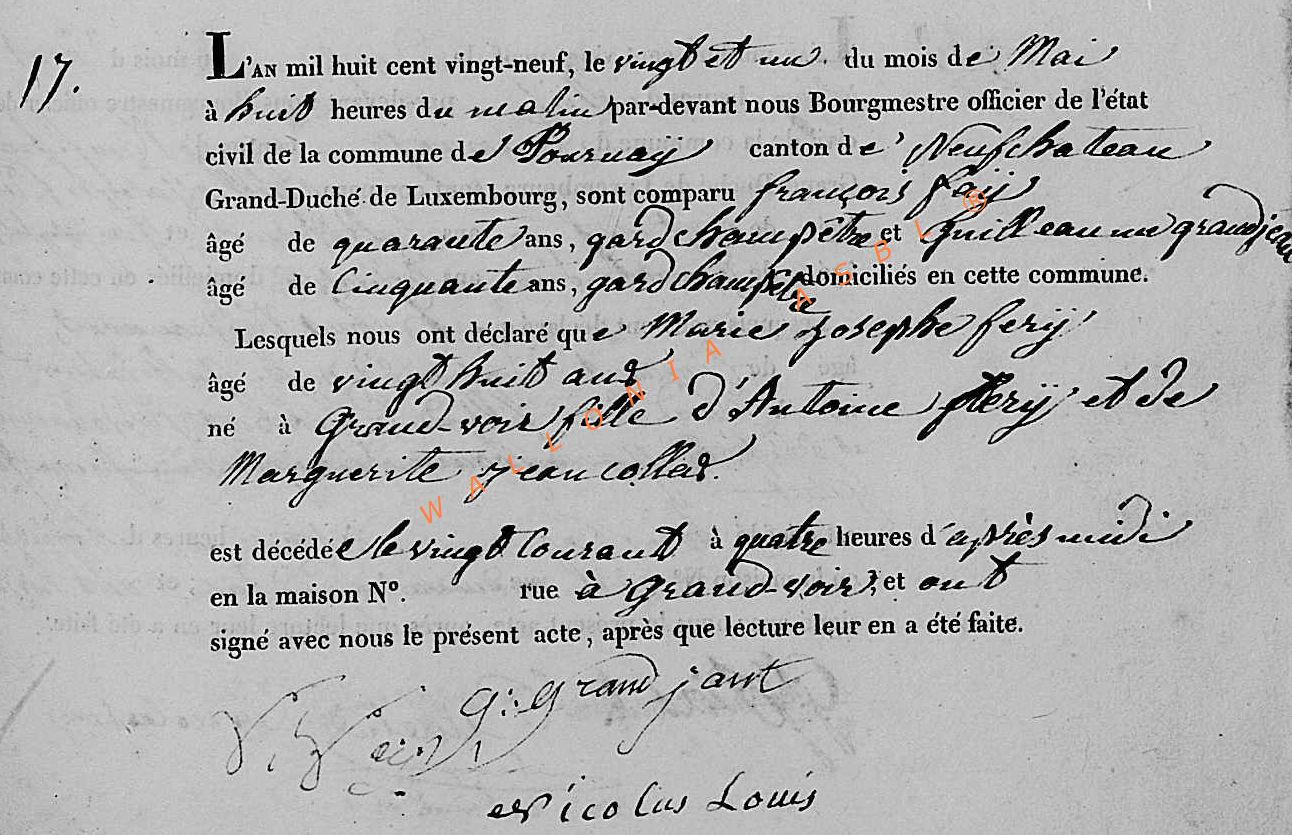 17.
L'AN mil huit cent vingt-neuf, le vingt et un du mois de Mai
à huit heures du matin par-devant nous Bourgmestre officier de l'état
civil de la commune de Tournay canton de Neufchateau
Grand-Duché de Luxembourg, sont comparu françois faÿ
âgé de quarante ans, gard champêtre et Guilleaume grandjean
âgé de Cinquante ans, gard champetre domiciliés en cette commune.
Lesquels nous ont déclaré que Marie Josephe ferÿ
âgé de vingt huit ans
né à Grand-voir fille d'Antoine ferÿ et de
Marguerite jeancollas
est décédée le vingt Courant à quatre heures d'après midi
en la maison N°. rue à grand-voir, et ont
signé avec nous le présent acte, après que lecture leur en a été faite.
G: Grand jant
Nicolas Louis
WALLONIA ASBL ®